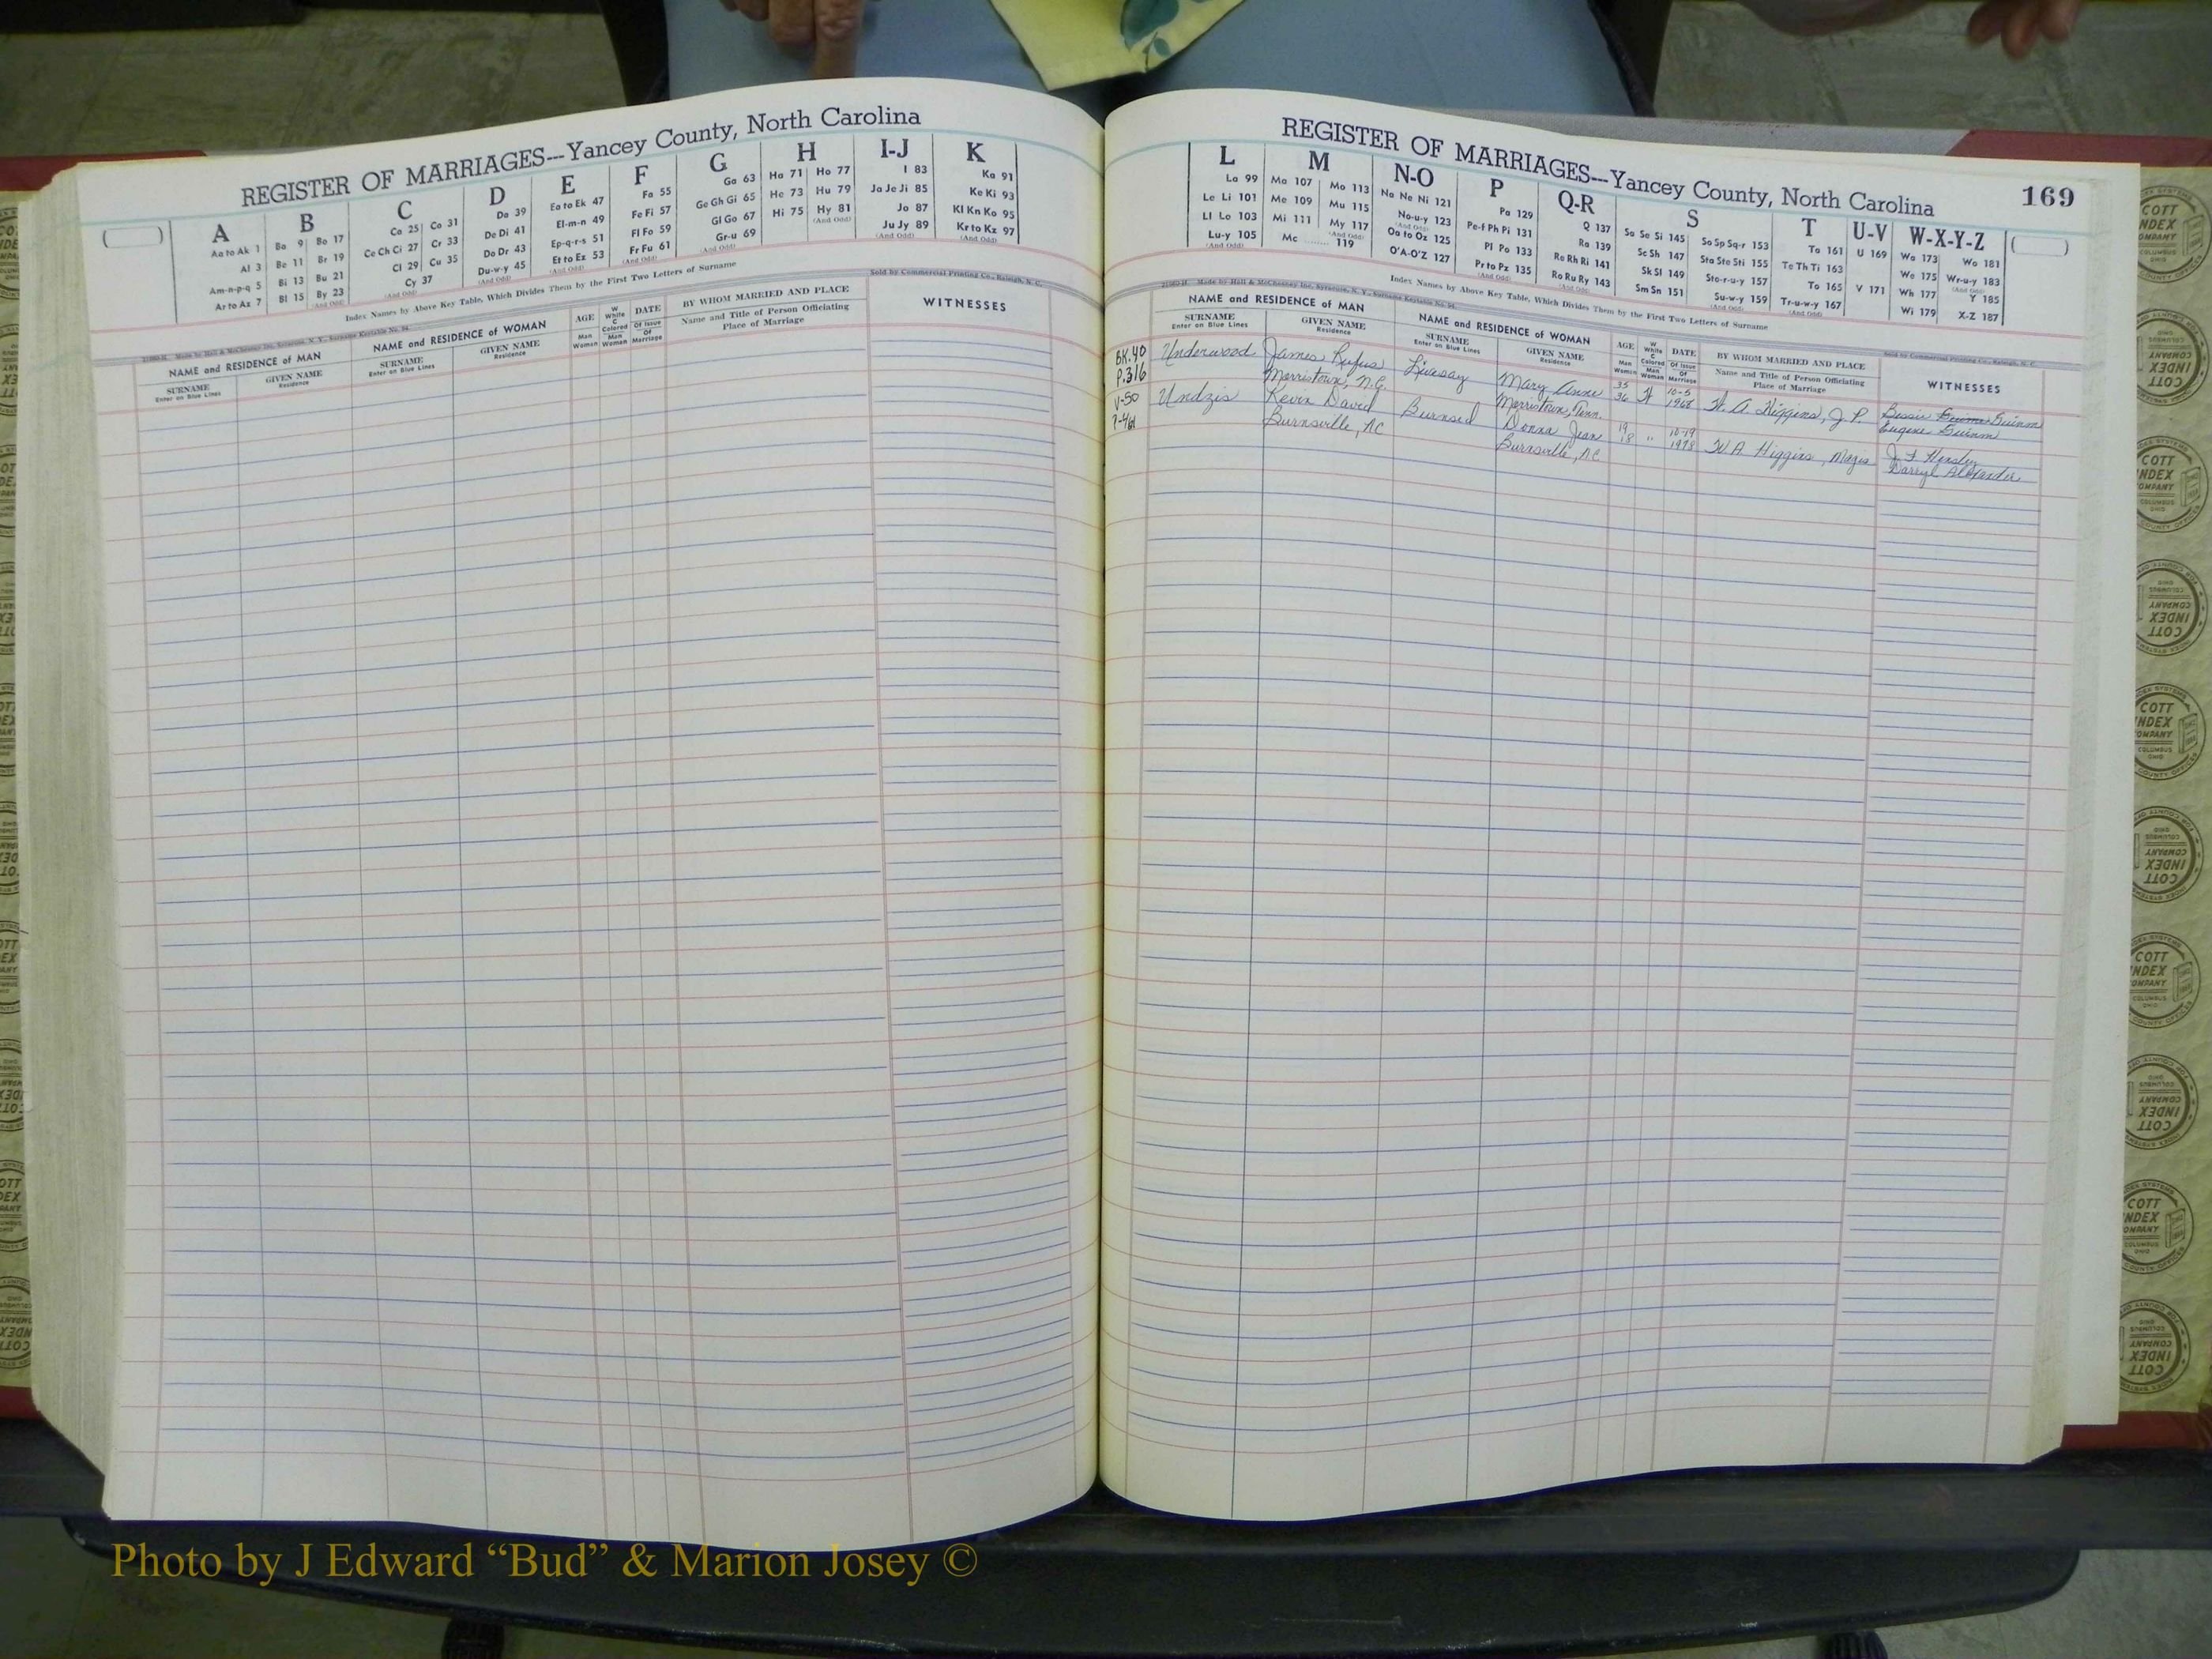 REGISTER OF MARRIAGES---Yancey County, North Carolina
A B C D E F G H I-J K
Aa to Ak 1
Al 3
Am-n-p-q 5
Ar to Az 7
Ba 9 Bo 17
Be 11 Br 19
Bi 13 Bu 21
Bl 15 By 23
(And Odd)
Ca 25 Co 31
Ce Ch Ci 27 Cr 33
Cl 29 Cu 35
Cy 37
(And Odd)
Da 39
De Di 41
Do Dr 43
Du-w-y 45
(And Odd)
Ea to Ek 47
El-m-n 49
Ep-q-r-s 51
Et to Ez 53
Fa 55
Fe Fi 57
Fl Fo 59
Fr Fu 61
(And Odd)
Ga 63
Ge Gh Gi 65
Gl Go 67
Gr-u 69
(And Odd)
Ha 71 Ho 77
He 73 Hu 79
Hi 75 Hy 81
(And Odd)
I 83
Ja Je Ji 85
Jo 87
Ju Jy 89
(And Odd)
Ka 91
Ke Ki 93
Kl Kn Ko 95
Kr to Kz 97
(And Odd)
Index Names by Above Key Table, Which Divides Them by the First Two Letters of Surname
Sold by Commercial Printing Co., Raleigh, N. C.
NAME and RESIDENCE of MAN
SURNAME
Enter on Blue Lines
GIVEN NAME
Residence
NAME and RESIDENCE of WOMAN
SURNAME
Enter on Blue Lines
GIVEN NAME
Residence
AGE
Man
Woman
W
White
C
Colored
Man
Woman
DATE
Of Issue
Of
Marriage
BY WHOM MARRIED AND PLACE
Name and Title of Person Officiating
Place of Marriage
WITNESSES
REGISTER OF MARRIAGES---Yancey County, North Carolina
169
L M N-O P Q-R S T U-V W-X-Y-Z
La 99
Le Li 101
Ll Lo 103
Lu-y 105
(And Odd)
Ma 107 Mo 113
Me 109 Mu 115
Mi 111 My 117
(And Odd)
Mc ........ 119
Na Ne Ni 121
No-u-y 123
(And Odd)
Oa to Oz 125
O'A-O'Z 127
Pa 129
Pe-f Ph Pi 131
Pl Po 133
Pr to Pz 135
(And Odd)
Q 137
Ra 139
Re Rh Ri 141
Ro Ru Ry 143
(And Odd)
Sa Se Si 145 So Sp Sq-r 153
Sc Sh 147 Sta Ste Sti 155
Sk Sl 149 Sto-r-u-y 157
Sm Sn 151 Su-w-y 159
(And Odd)
Ta 161
Te Th Ti 163
To 165
Tr-u-w-y 167
(And Odd)
U 169
V 171
Wa 173 Wo 181
We 175 Wr-u-y 183
(And Odd)
Wh 177 Y 185
Wi 179 X-Z 187
Index Names by Above Key Table, Which Divides Them by the First Two Letters of Surname
NAME and RESIDENCE of MAN
SURNAME
Enter on Blue Lines
GIVEN NAME
Residence
NAME and RESIDENCE of WOMAN
SURNAME
Enter on Blue Lines
GIVEN NAME
Residence
AGE
Man
Woman
W
White
C
Colored
Man
Woman
DATE
Of Issue
Of
Marriage
BY WHOM MARRIED AND PLACE
Name and Title of Person Officiating
Place of Marriage
WITNESSES
BK.40 Underwood James Rufus Livesay Mary Anne 35 W 10-5 W. A. Higgins, J. P. Bessie Guinn
P.316 Morristown, N.C. Morristown, Tenn. 36 1968 Eugene Guinn
V-50 Undzis Kevin David Burnsed Donna Jean 19 " 10-19 W A Higgins, Magis J. F. Hensley
P-461 Burnsville, NC Burnsville, NC 18 1978 Darryl Alexander
COTT
INDEX
COMPANY
COLUMBUS
OHIO
Photo by J Edward “Bud” & Marion Josey ©